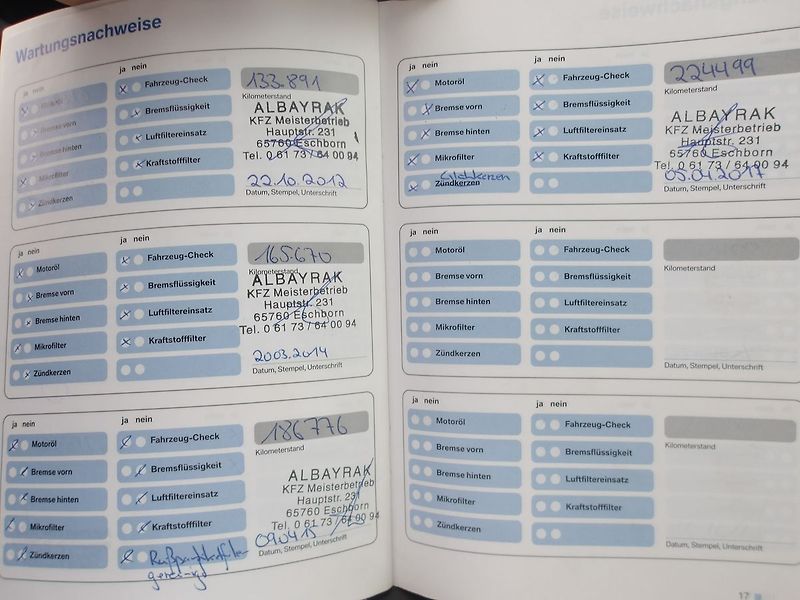 Wartungsnachweise
ja nein
ja nein
Motoröl
Bremse vorn
Bremse hinten
Mikrofilter
Zündkerzen
Fahrzeug-Check
Bremsflüssigkeit
Luftfiltereinsatz
Kraftstofffilter
133.891
Kilometerstand
ALBAYRAK
KFZ Meisterbetrieb
Hauptstr. 231
65760 Eschborn
Tel. 0 61 73 / 64 00 94
22.10.2012
Datum, Stempel, Unterschrift
ja nein
ja nein
Motoröl
Bremse vorn
Bremse hinten
Mikrofilter
Zündkerzen
Fahrzeug-Check
Bremsflüssigkeit
Luftfiltereinsatz
Kraftstofffilter
165.670
Kilometerstand
ALBAYRAK
KFZ Meisterbetrieb
Hauptstr. 231
65760 Eschborn
Tel. 0 61 73 / 64 00 94
2003.2014
Datum, Stempel, Unterschrift
ja nein
ja nein
Motoröl
Bremse vorn
Bremse hinten
Mikrofilter
Zündkerzen
Fahrzeug-Check
Bremsflüssigkeit
Luftfiltereinsatz
Kraftstofffilter
186776
Kilometerstand
ALBAYRAK
KFZ Meisterbetrieb
Hauptstr. 231
65760 Eschborn
Tel. 0 61 73 / 64 00 94
090415
Datum, Stempel, Unterschrift
ja nein
ja nein
Motoröl
Bremse vorn
Bremse hinten
Mikrofilter
Glühkerzen
Zündkerzen
Fahrzeug-Check
Bremsflüssigkeit
Luftfiltereinsatz
Kraftstofffilter
224499
Kilometerstand
ALBAYRAK
KFZ Meisterbetrieb
Hauptstr. 231
65760 Eschborn
Tel. 0 61 73 / 64 00 94
05.04.2017
Datum, Stempel, Unterschrift
ja nein
ja nein
Motoröl
Bremse vorn
Bremse hinten
Mikrofilter
Zündkerzen
Fahrzeug-Check
Bremsflüssigkeit
Luftfiltereinsatz
Kraftstofffilter
Kilometerstand
Datum, Stempel, Unterschrift
ja nein
ja nein
Motoröl
Bremse vorn
Bremse hinten
Mikrofilter
Zündkerzen
Fahrzeug-Check
Bremsflüssigkeit
Luftfiltereinsatz
Kraftstofffilter
Kilometerstand
Datum, Stempel, Unterschrift
17